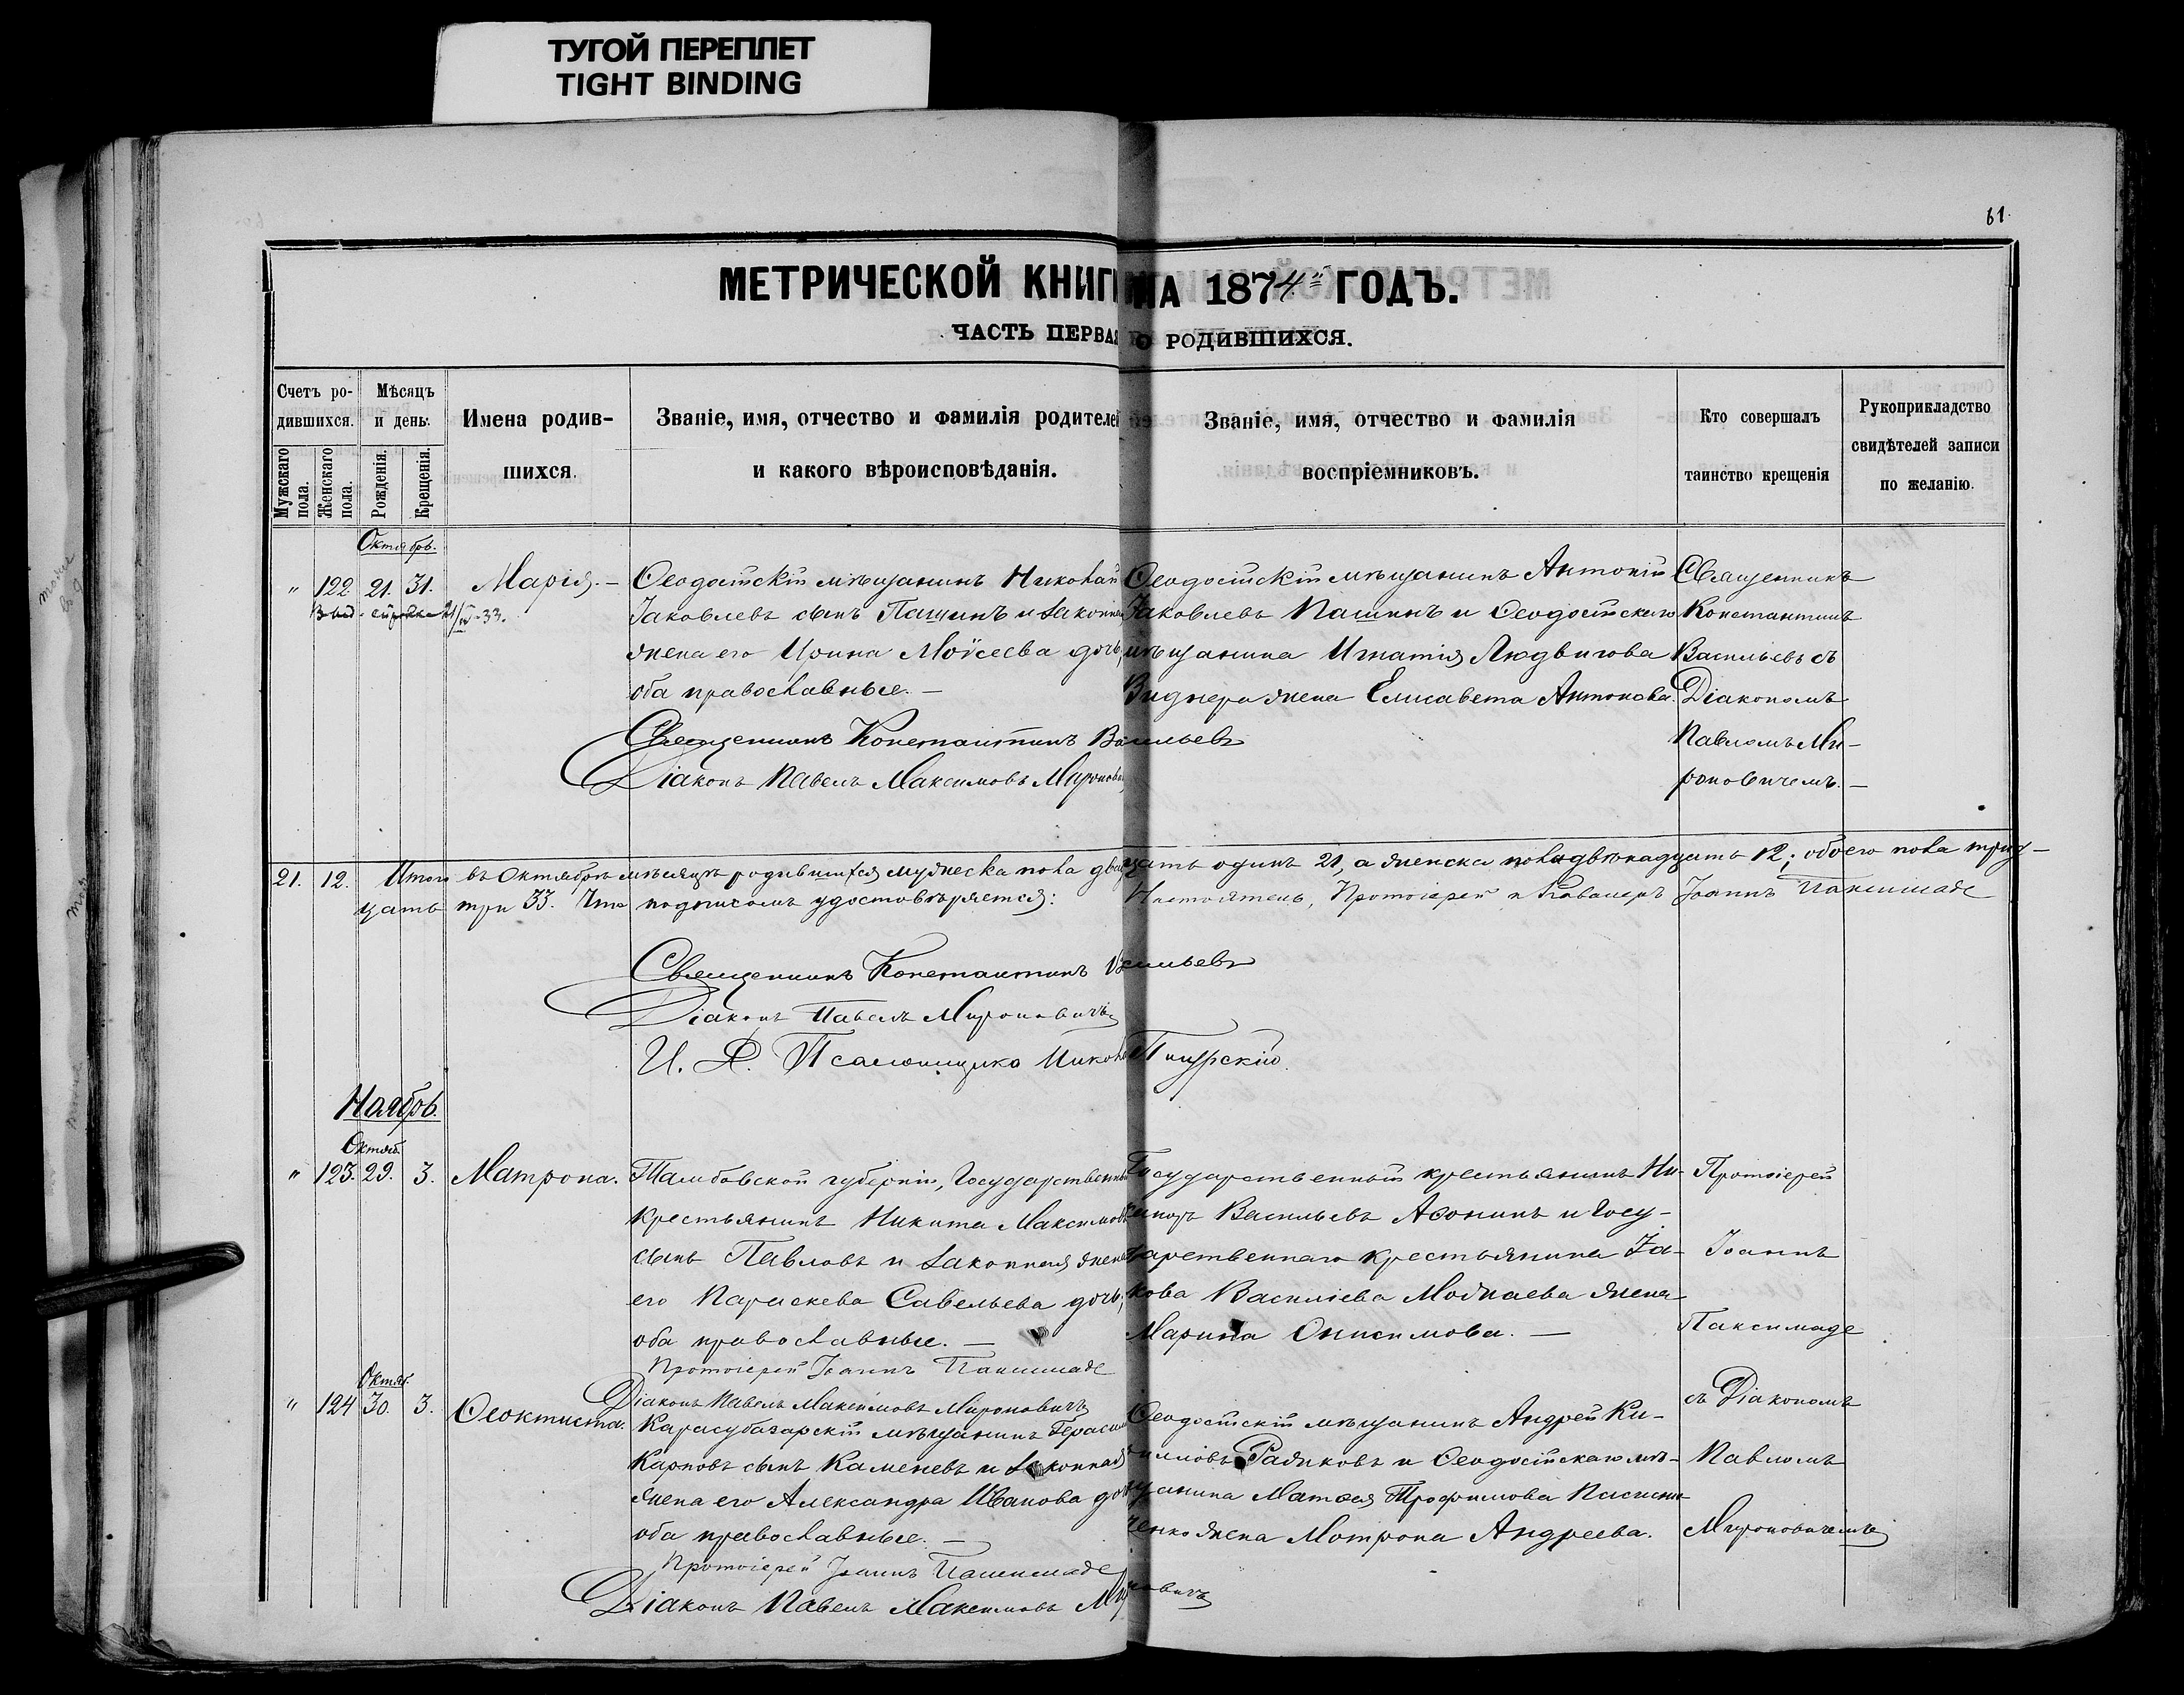 ТУГОЙ ПЕРЕПЛЕТ
TIGHT BINDING
61
МЕТРИЧЕСКОЙ КНИГ НА 1874 ГОДЪ.
ЧАСТЬ ПЕРВАЯ О РОДИВШИХСЯ.
Счетъ ро-
дившихся.
Мужскаго пола.
Женскаго пола.
Мѣсяцъ
и день.
Рожденія.
Крещенія.
Имена родив-
шихся.
Званіе, имя, отчество и фамилія родителей
и какого вѣроисповѣданія.
Званіе, имя, отчество и фамилія
воспріемниковъ.
Кто совершалъ
таинство крещенія
Рукоприкладство
свидѣтелей записи
по желанію.
Октябрь.
" 122 21. 31. Марія. —
Ѳеодосійскій мѣщанинъ Николай
Іаковлевъ сынъ Пашинъ и законная
жена его Ирина Моѵсеева дочь,
оба православные. —
Ѳеодосійскій мѣщанинъ Антоній
Іаковлевъ Пашинъ и Ѳеодосійскаго
мѣщанина Игнатія Людвигова
Виднера жена Елисавета Антонова.
Священникъ
Константинъ
Васильевъ съ
Діакономъ
Павломъ Ми-
роновичемъ. —
Священникъ Константинъ Васильевъ
Діаконъ Павелъ Максимовъ Мироновичъ
21. 12. Итого въ Октябрѣ мѣсяцѣ родившихся мужеска пола двадцать одинъ 21, а женска пола двѣнадцать 12; обоего пола трид-
цать три 33. Что подписомъ удостовѣряется: Настоятель, Протоіерей и Кавалеръ Іоаннъ Паксимаде
Священникъ Константинъ Васильевъ
Діаконъ Павелъ Мироновичъ
И. Д. Псаломщика
Ноябрь.
Октяб.
" 123. 29. 3. Матрона.
Тамбовской губерніи, Государственный
крестьянинъ Никита Максимовъ
сынъ Павловъ и законная жена
его Параскева Савельева дочь;
оба православные. —
Государственный крестьянинъ Ни-
каноръ Васильевъ Аѳонинъ и Госу-
дарственнаго крестьянина Іа-
кова Василіева жена
Марина Онисимова. —
Протоіерей
Іоаннъ
Паксимаде
съ Діакономъ
Павломъ
Мироновичемъ
Протоіерей Іоаннъ Паксимаде
Діаконъ Павелъ Максимовъ Мироновичъ
Октяб.
" 124 30. 3. Ѳеоктиста.
Карасубазарскій мѣщанинъ Герасимъ
Карповъ сынъ Каменевъ и законная
жена его Александра Иванова дочь
оба православные. —
Ѳеодосійскій мѣщанинъ Андрей Ки-
рилловъ Радиковъ и Ѳеодосійскаго мѣ-
щанина Матѳея Трофимова
жена Мотрона Андреева.
Протоіерей Іоаннъ Паксимаде
Діаконъ Павелъ Максимовъ Мироновичъ